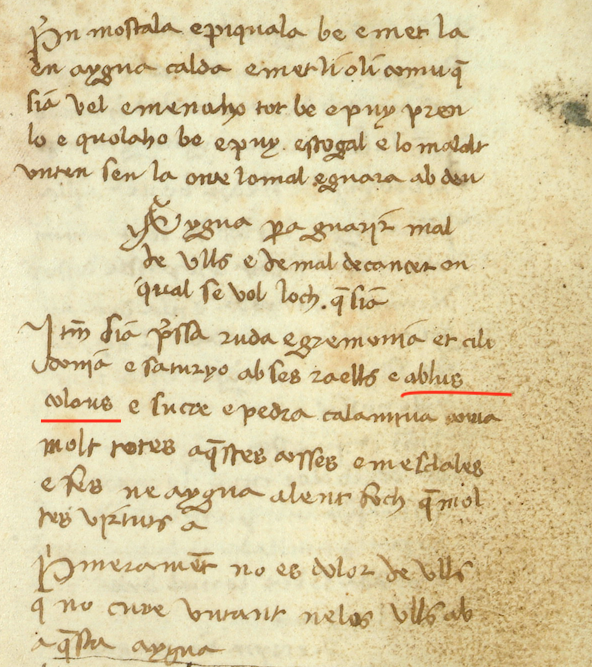 Pn mostala e piquala be e met la
en aygua calda e met li oli comuq̄
sia vel e menaho tot be e puy pren
lo e quolaho be e puy estogal e lo malalt
unten sen la on te lo mal e guara ab deu
Aygua pa guarir mal
de vlls e de mal de cancer on
qual se vol loch q̄ sia
Itm̄ sia p̄ssa ruda e gremonia et cili
donia e saturyo ab ses raells e ablus
colorus e sucre e pedra calamina
molt totes aq̄stes cosses e mesclales
e fes ne aygua a lent foch q̄ mol
tes virtuts a
Pmerament̄ no es dolor de vlls
q̄ no cure untant ne los vlls ab
aq̄sta aygua